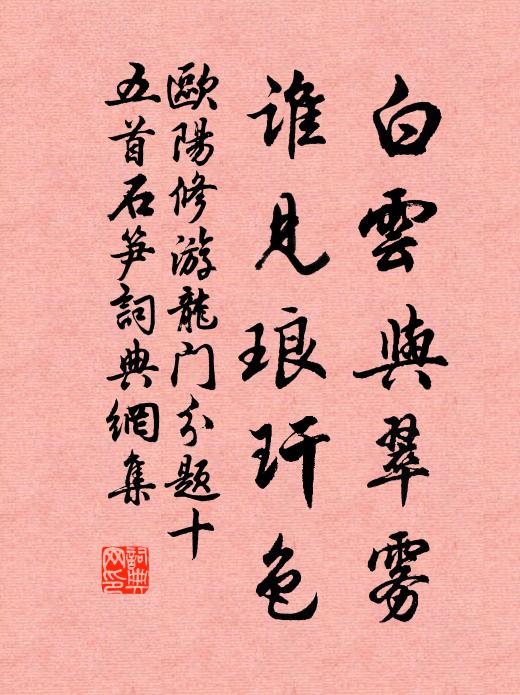 白雲與翠霧
谁見琅玕色
歐陽修游龍门分题十
五首石笋詞典網集
詞典
网印